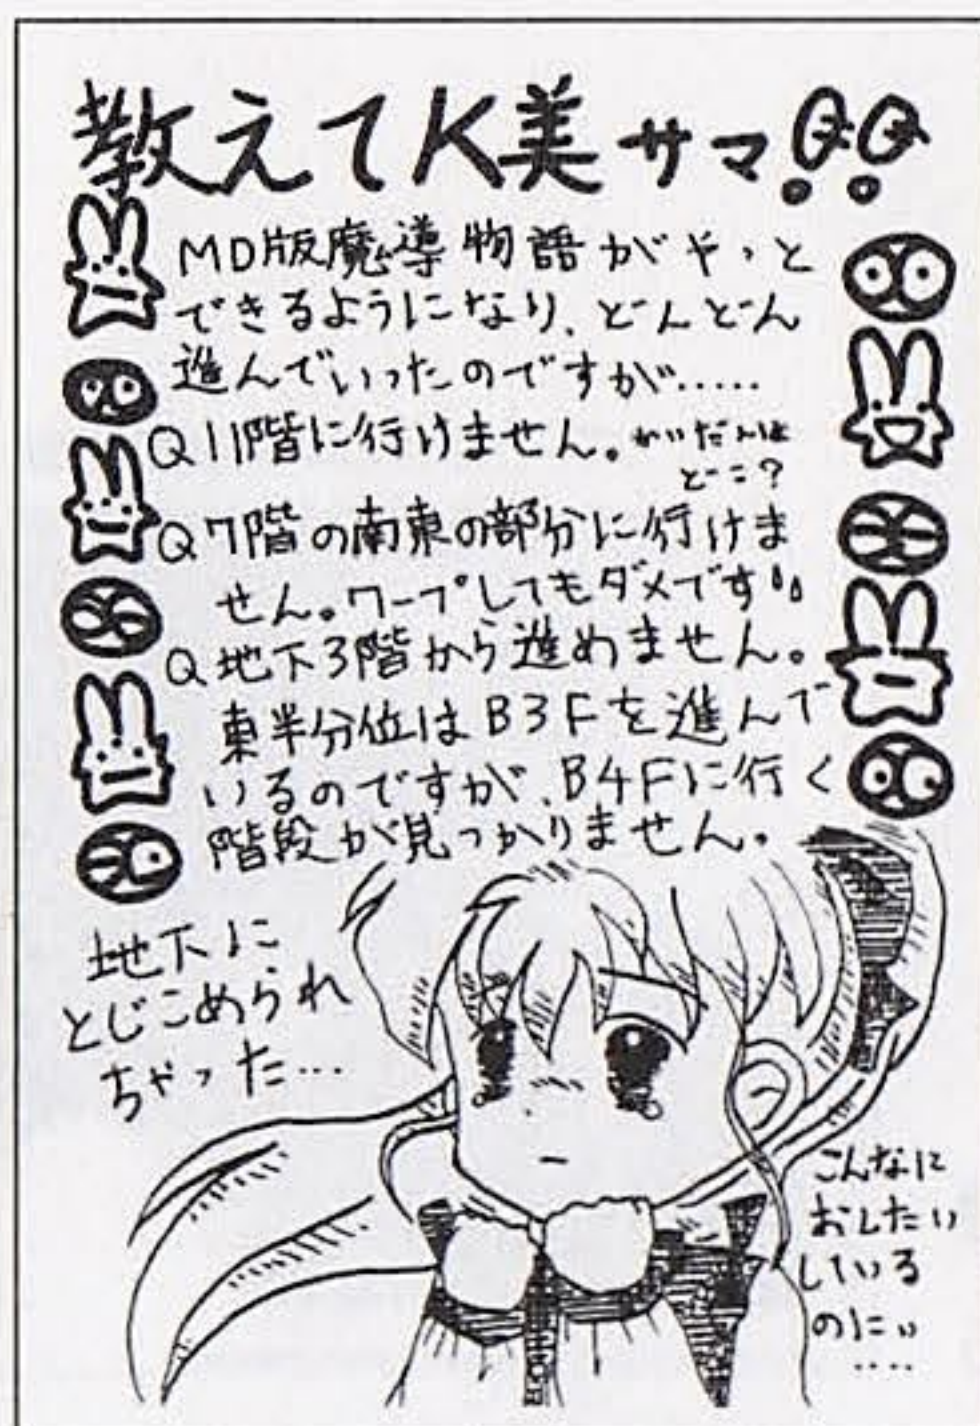 教えてK美サマ!!
MD版魔導物語がやっと
できるようになり、どんどん
進んでいったのですが……
Q 11階に行けません。かいだんは
どこ?
Q 7階の南東の部分に行けま
せん。ワープしてもダメです〃
Q 地下3階から進めません。
東半分位はB3Fを進んで
いるのですが、B4Fに行く
階段が見つかりません。
地下に
とじこめられ
ちゃった…
こんなに
おしたい
している
のに〃
‥‥